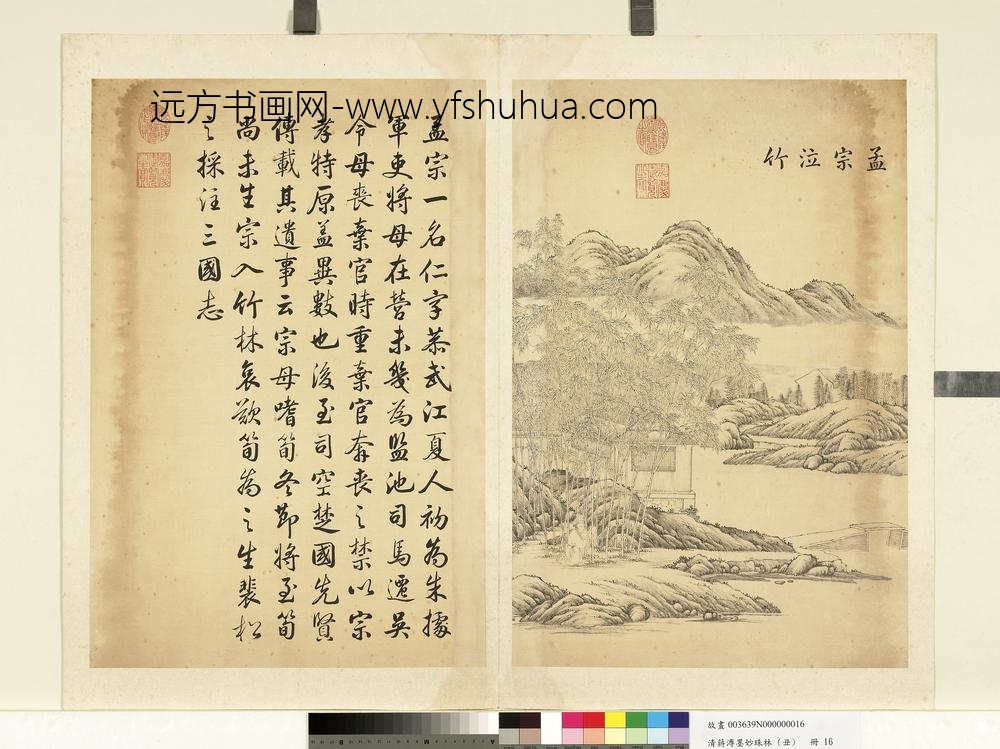 远方书画网-www.yfshuhua.com
孟宗泣竹
孟宗一名仁字恭武江夏人初為朱據
軍吏將母在營未幾為監池司馬遷吳
令母喪棄官時重棄官奔喪之禁以宗
孝特原蓋異數也後至司空楚國先賢
傳載其遺事云宗母嗜筍冬節將至筍
尚未生宗入竹林哀歎筍為之生裴松
之採注三國志
故畫 003639N000000016
清蔣溥墨妙珠林（丑） 冊 16